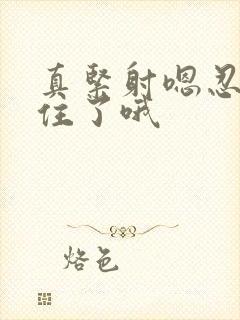 真紧射嗯忍
住了哦
烙色